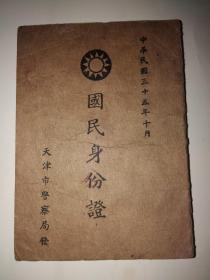 中華民國三十五年十月
國民身份證
天津市警察局發